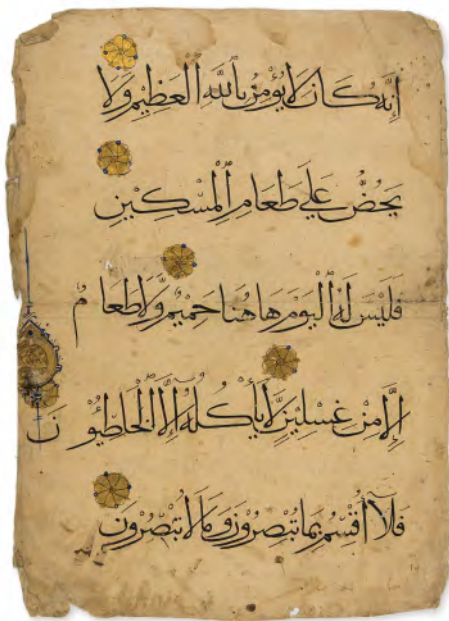 إِنَّهُ كَانَ لَا يُؤْمِنُ بِاللَّهِ الْعَظِيمِ وَلَا
يَحُضُّ عَلَى طَعَامِ الْمِسْكِينِ
فَلَيْسَ لَهُ الْيَوْمَ هَاهُنَا حَمِيمٌ وَلَا طَعَامٌ
إِلَّا مِنْ غِسْلِينٍ لَا يَأْكُلُهُ إِلَّا الْخَاطِئُونَ
فَلَا أُقْسِمُ بِمَا تُبْصِرُونَ وَمَا لَا تُبْصِرُونَ